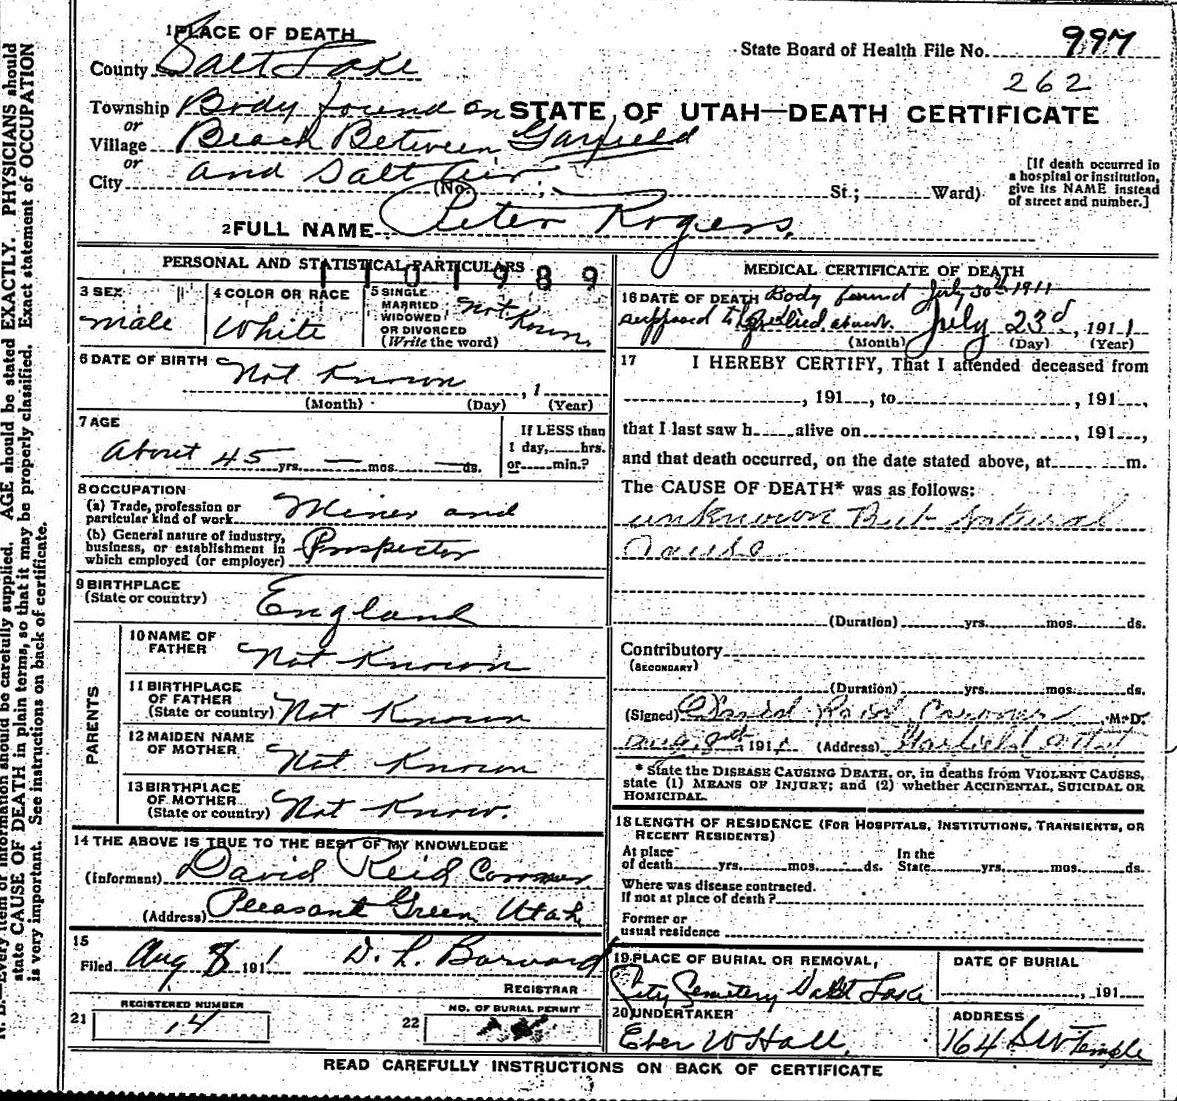 1 PLACE OF DEATH
State Board of Health File No. 997
County Salt Lake
262
Township Body found on
STATE OF UTAH—DEATH CERTIFICATE
or
Village Beach Between Garfield
or
City and Salt Air (No. St.; Ward)
[If death occurred in
a hospital or institution,
give its NAME instead
of street and number.]
2 FULL NAME Peter Rogers
PERSONAL AND STATISTICAL PARTICULARS
1101989
3 SEX
male
4 COLOR OR RACE
White
5 SINGLE
MARRIED
WIDOWED
OR DIVORCED
(Write the word)
Not Known
6 DATE OF BIRTH
Not Known , 1
(Month) (Day) (Year)
7 AGE
About 45 yrs. — mos. — ds.
If LESS than
1 day, hrs.
or min.?
8 OCCUPATION
(a) Trade, profession or
particular kind of work Miner and
(b) General nature of industry,
business, or establishment in
which employed (or employer) Prospector
9 BIRTHPLACE
(State or country) England
PARENTS
10 NAME OF
FATHER Not Known
11 BIRTHPLACE
OF FATHER
(State or country) Not Known
12 MAIDEN NAME
OF MOTHER Not Known
13 BIRTHPLACE
OF MOTHER
(State or country) Not Know.
14 THE ABOVE IS TRUE TO THE BEST OF MY KNOWLEDGE
(Informant) David Reid Coroner
(Address) Pleasant Green, Utah
15
Filed Aug 8 1911 D. L.
REGISTRAR
REGISTERED NUMBER
21 14
NO. OF BURIAL PERMIT
22
MEDICAL CERTIFICATE OF DEATH
16 DATE OF DEATH Body found July 30th 1911
supposed to died about July 23d, 1911
(Month) (Day) (Year)
17 I HEREBY CERTIFY, That I attended deceased from
, 191 , to , 191 ,
that I last saw h alive on , 191 ,
and that death occurred, on the date stated above, at m.
The CAUSE OF DEATH* was as follows:
unknown But Natural
Cause
(Duration) yrs. mos. ds.
Contributory
(SECONDARY)
(Duration) yrs. mos. ds.
(Signed) David Reid Coroner, M.D.
Aug 8th 1911 (Address) Garfield Utah
* State the DISEASE CAUSING DEATH, or, in deaths from VIOLENT CAUSES,
state (1) MEANS OF INJURY; and (2) whether ACCIDENTAL, SUICIDAL OR
HOMICIDAL.
18 LENGTH OF RESIDENCE (FOR HOSPITALS, INSTITUTIONS, TRANSIENTS, OR
RECENT RESIDENTS)
At place
of death yrs. mos. ds.
In the
State yrs. mos. ds.
Where was disease contracted.
If not at place of death?
Former or
usual residence
19 PLACE OF BURIAL OR REMOVAL,
City Cemetery Salt Lake
DATE OF BURIAL
, 191
20 UNDERTAKER
Eber W Hall,
ADDRESS
164 S W Temple
READ CAREFULLY INSTRUCTIONS ON BACK OF CERTIFICATE
N. B.—Every item of information should be carefully supplied. AGE should be stated EXACTLY. PHYSICIANS should
state CAUSE OF DEATH in plain terms, so that it may be properly classified. Exact statement of OCCUPATION
is very important. See instructions on back of certificate.